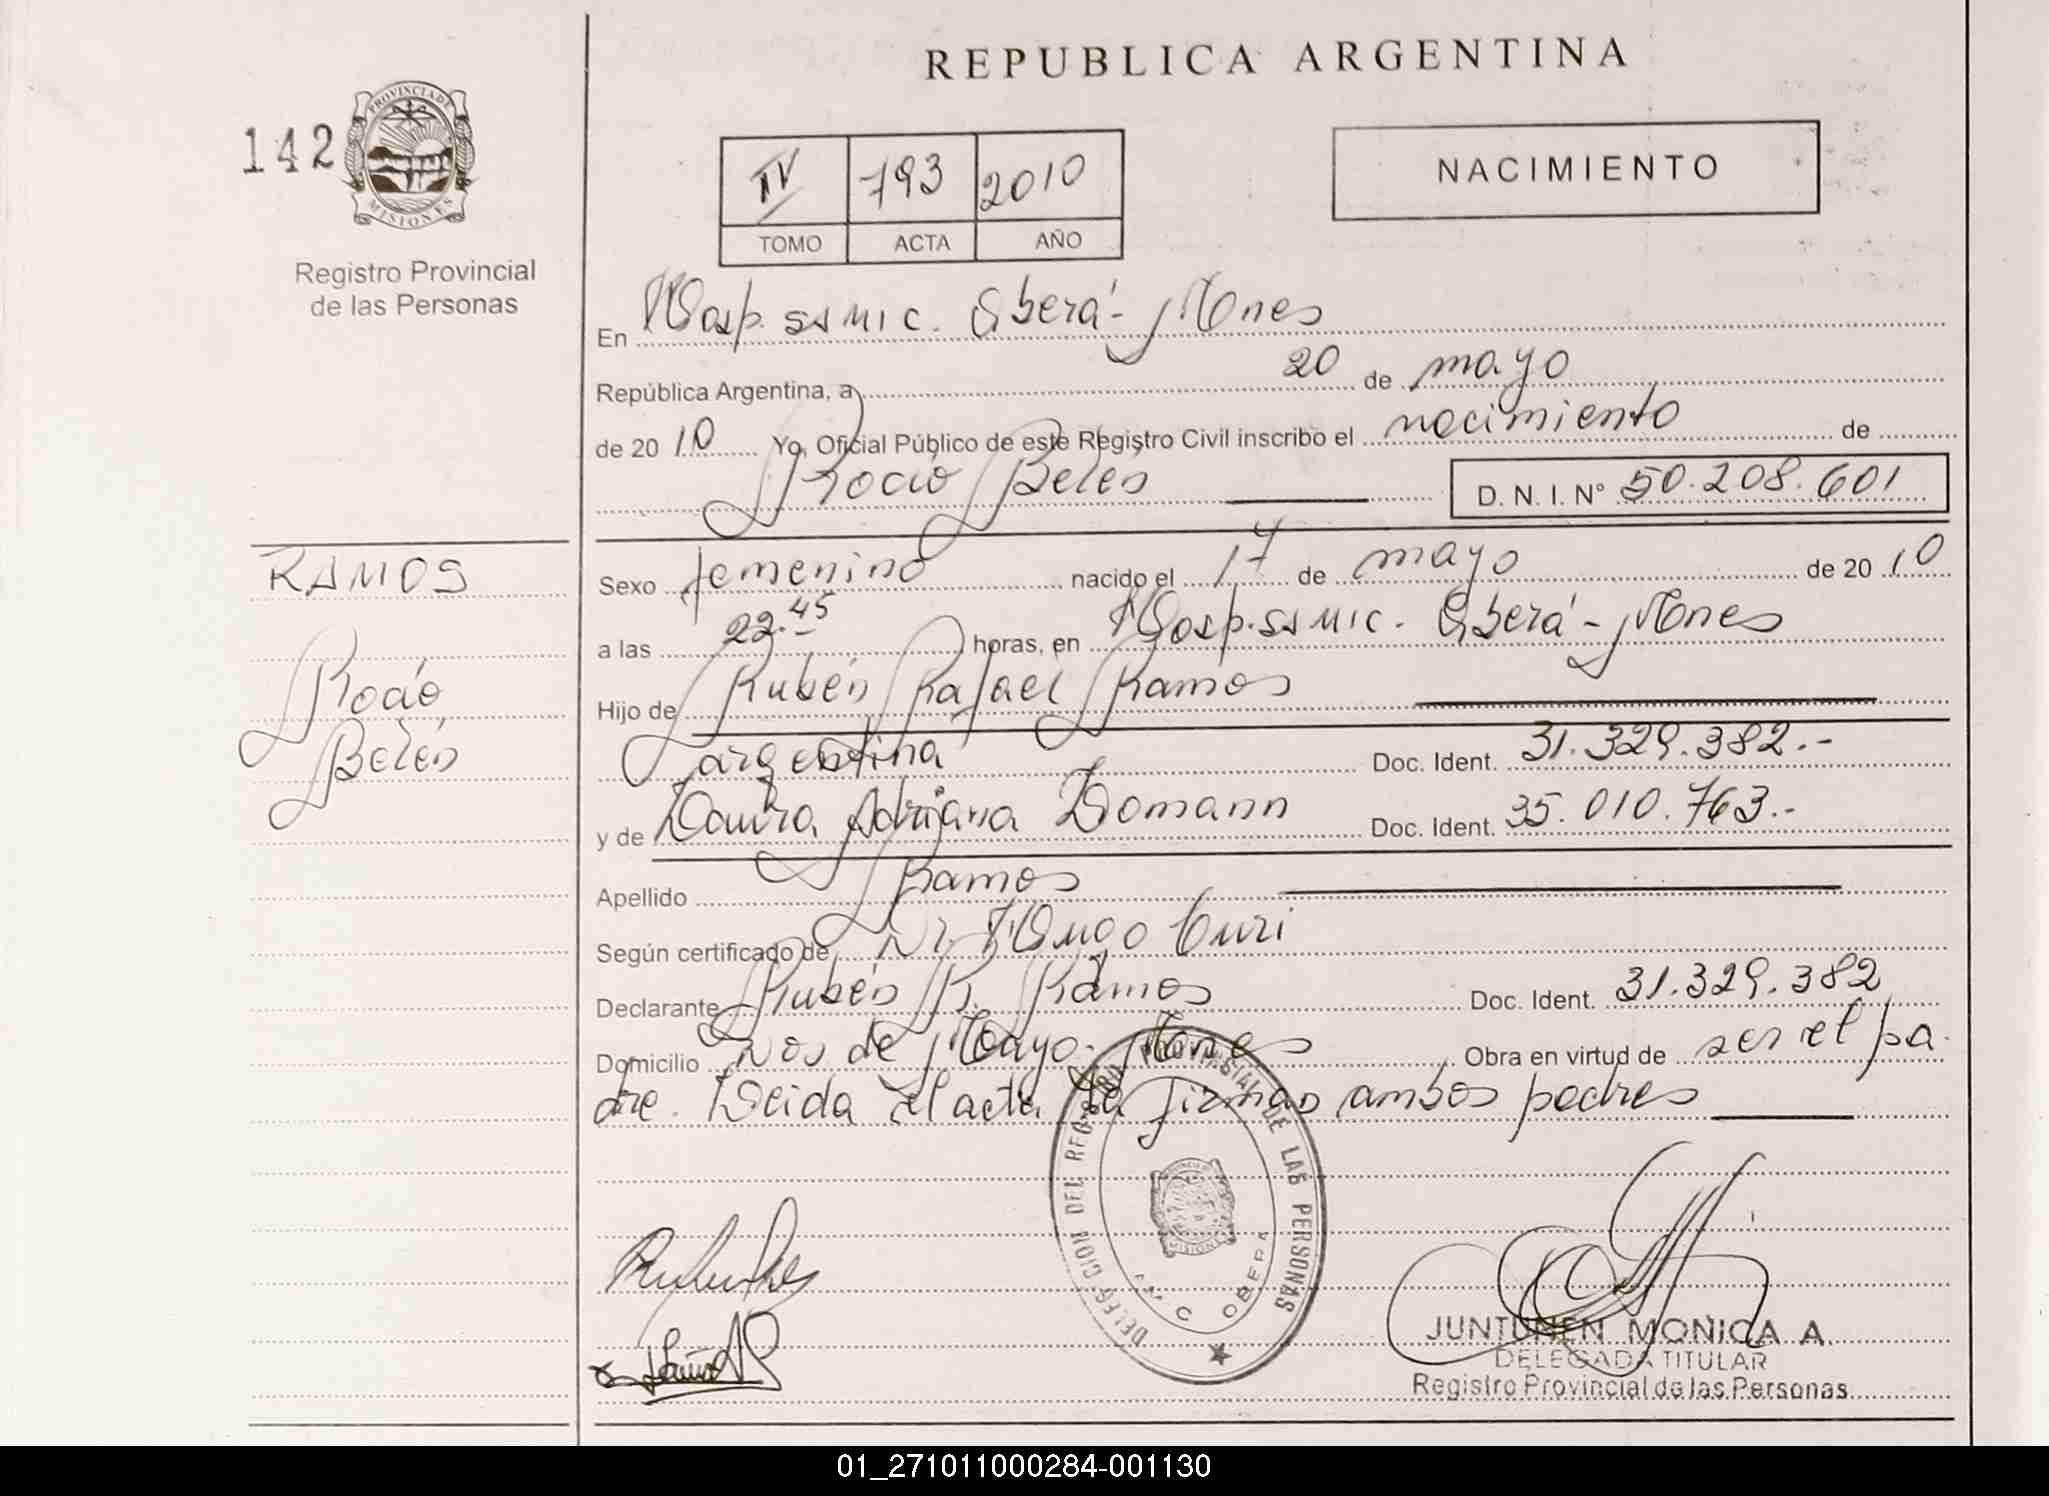 REPUBLICA ARGENTINA
142
PROVINCIA DE
MISIONES
Registro Provincial
de las Personas
IV 793 2010
TOMO ACTA AÑO
NACIMIENTO
En Hosp. SAMIC. Oberá - Mnes
República Argentina, a 20 de mayo
de 2010 Yo, Oficial Público de este Registro Civil inscribo el nacimiento de
Rocío Belén D. N. I. Nº 50.208.601
RAMOS
Rocío
Belén
Sexo femenino nacido el 17 de mayo de 2010
a las 22.45 horas, en Hosp. SAMIC. Oberá - Mnes
Hijo de Rubén Rafael Ramos
argentina Doc. Ident. 31.329.382.-
y de Laura Adriana Domann Doc. Ident. 35.010.763.-
Apellido Ramos
Según certificado de Dr. Hugo Curi
Declarante Rubén R. Ramos Doc. Ident. 31.329.382
Domicilio Dos de Mayo - Mnes Obra en virtud de ser el pa
dre. Leida el acta la firman ambos padres
DELEGACION DEL REGISTRO PROVINCIAL DE LAS PERSONAS
MISIONES
OBERA
JUNTUNEN MONICA A.
DELEGADA TITULAR
Registro Provincial de las Personas
01_271011000284-001130